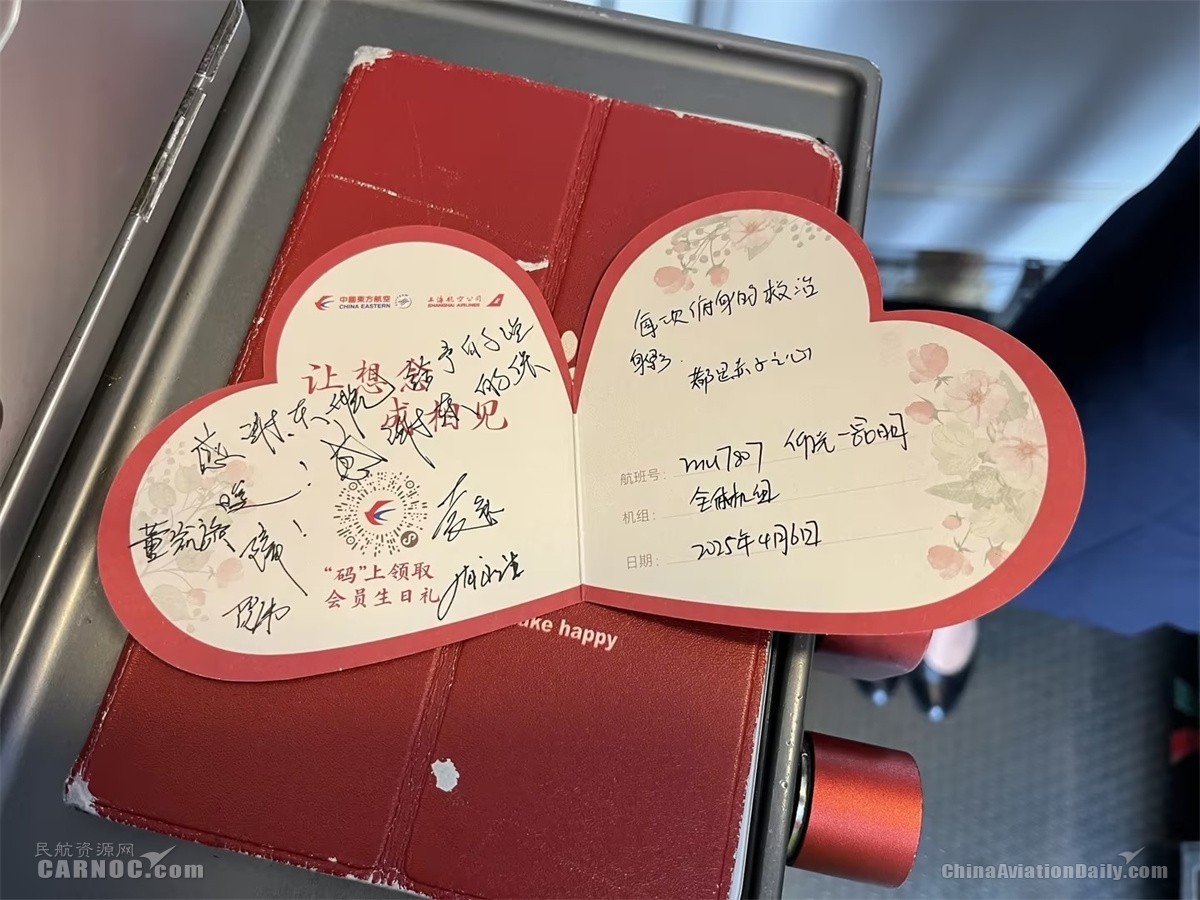 中國東方航空
CHINA EASTERN
上海航空公司
SHANGHAI AIRLINES
让想念
成相见
感谢东航给予的
感谢 的保
董
"码"上领取
会员生日礼
每次俯身的救治
身影
都是赤子之心
航班号: mu7807
机组: 全体机组
日期: 2025年4月6日
ake happy
民航资源网
CARNOC.com
ChinaAviationDaily.com